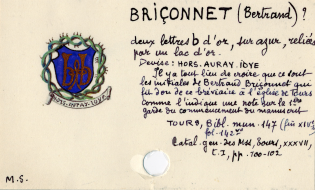 BRIÇONNET (Bertrand) ?
deux lettres b d'or, sur azur, reliées
par un lac d'or.
Devise : HORS. AURAY. IDYE
Il y a tout lieu de croire que ce sont
les initiales de Bertrand Briçonnet qui
fit don de ce bréviaire à l'église de Tours
comme l'indique une note sur le 1er
garde du commencement du manuscrit
TOURS, Bibl. mun. 147 (fin XIVe)
fol. 142vo
Catal. gén. des Mss, Tours, XXXVII,
t. I, pp. 100-102
HORS. AURAY. IDYE
M.S.